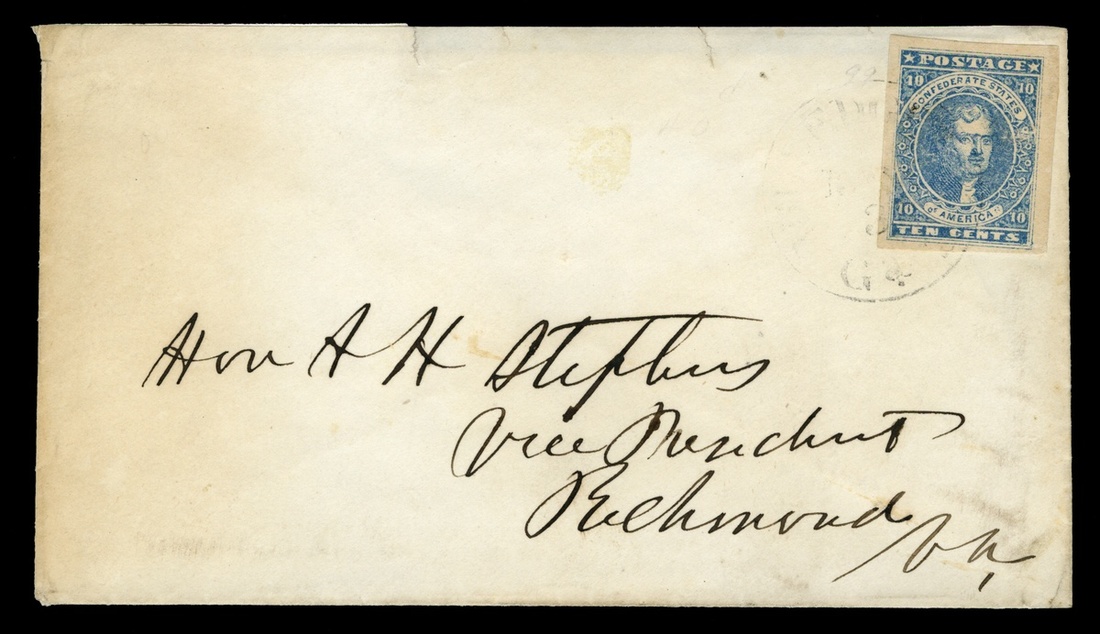 92
★ POSTAGE ★
10 10
CONFEDERATE STATES
of AMERICA
10 10
TEN CENTS
Ga
Hon A H Stephens
Vice President
Richmond
Va,